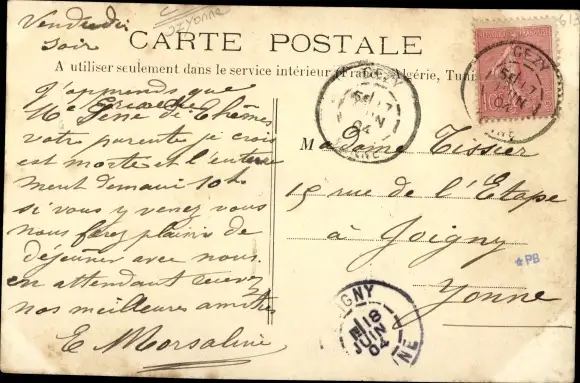 Vendredi
soir
CARTE POSTALE
A utiliser seulement dans le service intérieur (France, Algérie, Tunis
J'apprends que
Me Grioche
Thèmes
votre parente je crois
est morte et l'enterre
ment demain 10h
si vous y venez vous
nous ferez plaisir de
déjeuner avec nous
en attendant recevez
nos meilleures amitiés
E Morsaline
Madame Tissier
15 rue de l'Etape
à Joigny
Yonne
CEZY
17
JUIN
04
YONNE
CEZY
17
JUIN
04
YONNE
IGNY
18
JUIN
04
NE
*PB
613